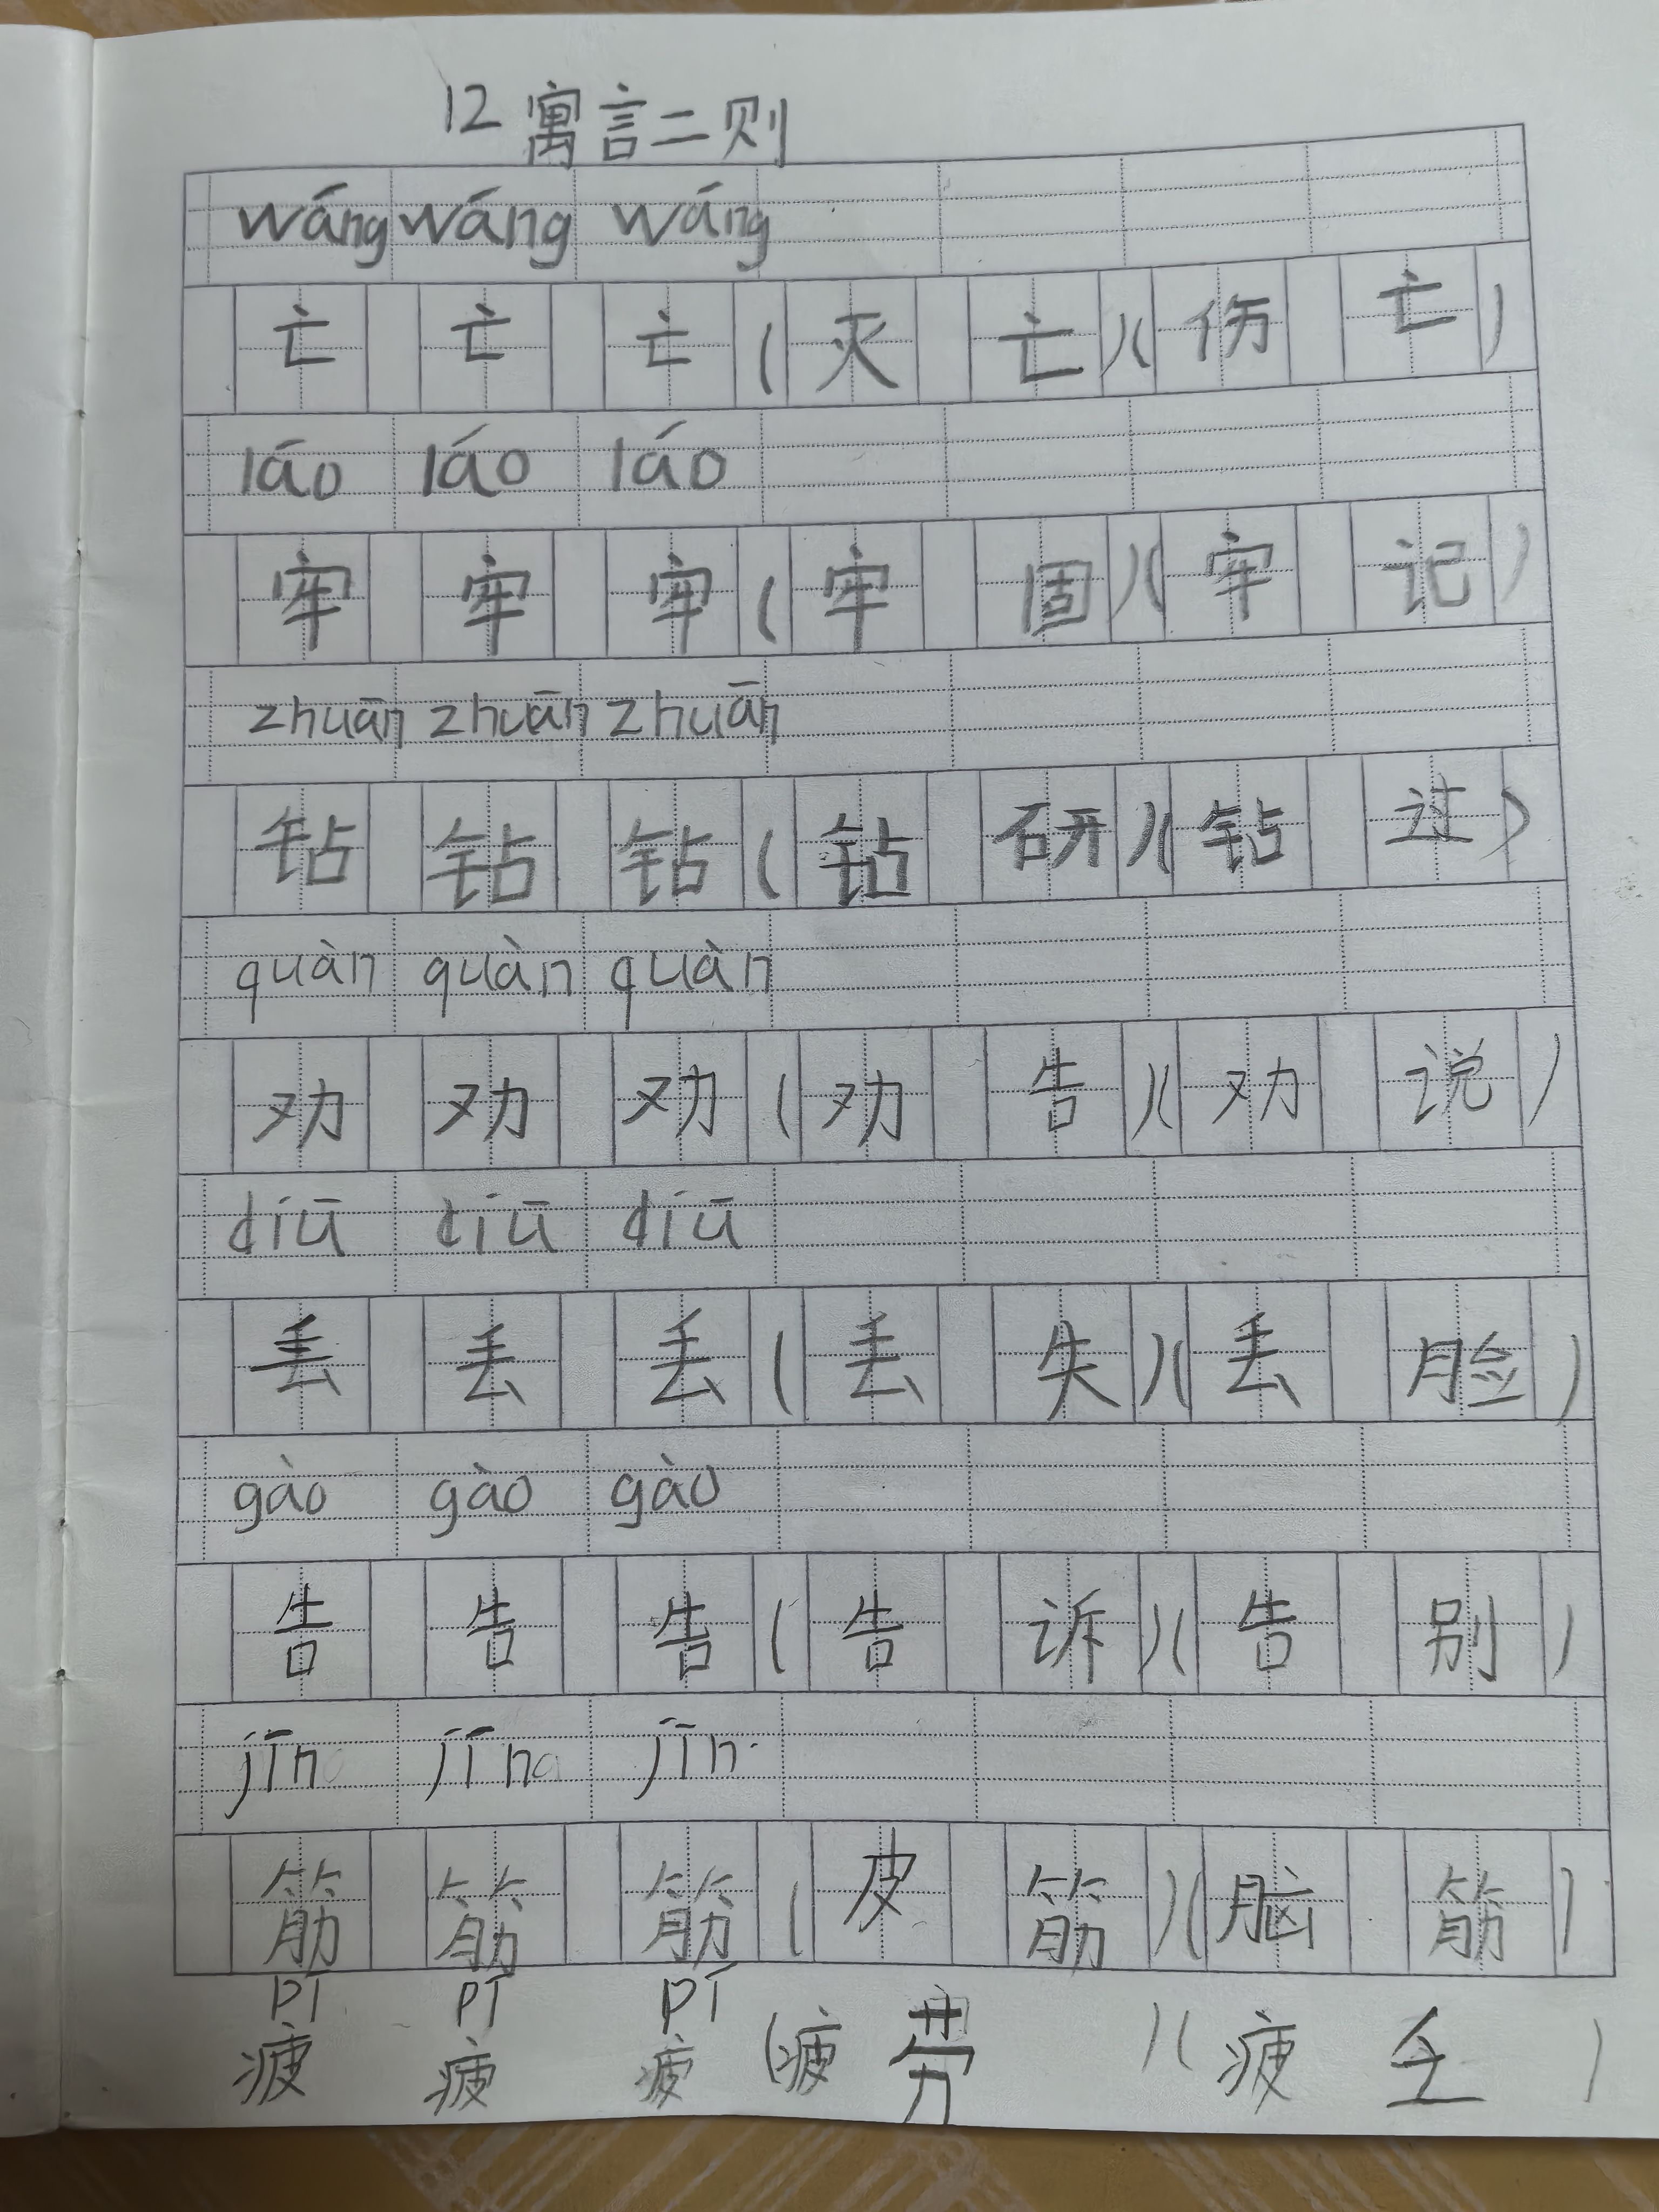 12 寓言二则
wáng wáng wáng
亡 亡 亡 (灭亡)(伤亡)
láo láo láo
牢 牢 牢 (牢固)(牢记)
zhuān zhuān zhuān
钻 钻 钻 (钻研)(钻过)
quàn quàn quàn
劝 劝 劝 (劝告)(劝说)
diū diū diū
丢 丢 丢 (丢失)(丢脸)
gào gào gào
告 告 告 (告诉)(告别)
jīn jīn jīn
筋 筋 筋 (皮筋)(脑筋)
pí pí pí
疲 疲 疲 (疲劳)(疲乏)